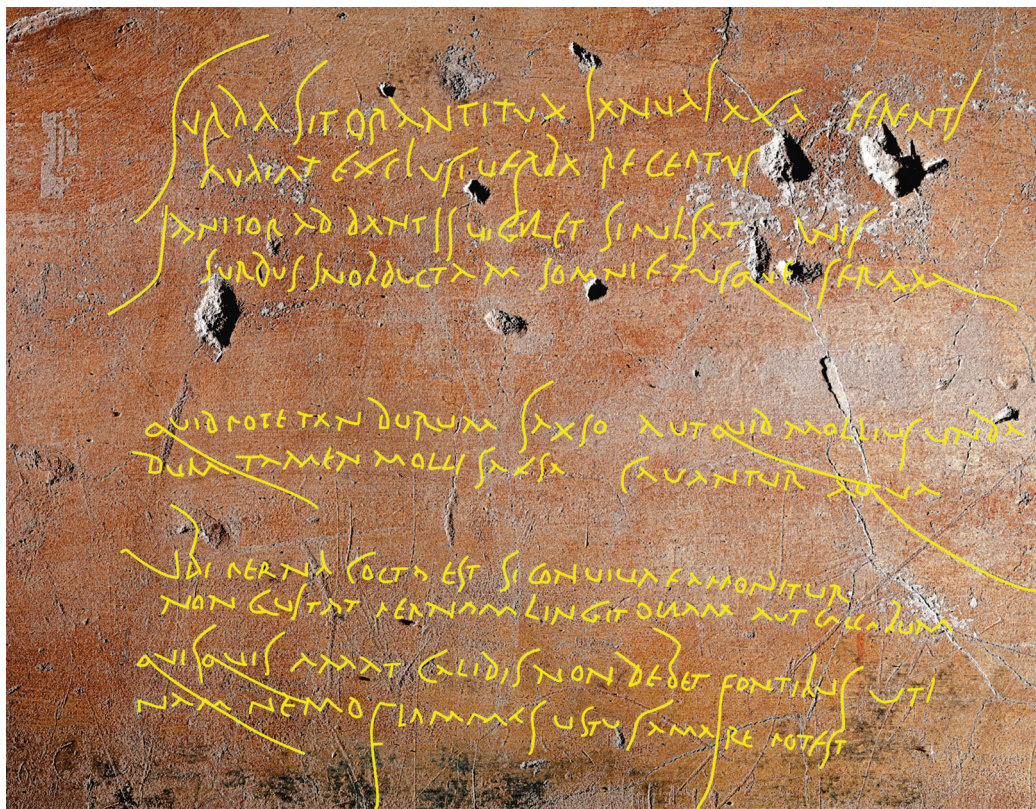 SURDA SIT ORANTI TUA IANUA LAXA FERENTI
AUDIAT EXCLUSI UERBA RECEPTUS
IANITOR AD DANTIS UIGILET SI PULSAT
SURDUS IN OBDUCTAM SOMNIET USQUE SERAM
QUID POTE TAN DURUM SAXSO AUT QUID MOLLIUS UNDA
DURA TAMEN MOLLI SAXSA CAUANTUR AQUA
UBI PERNA COCTA EST SI CONUIUAE APPONITUR
NON GUSTAT PERNAM LINGIT OLLAM AUT CACCABUM
QUISQUIS AMAT CALIDIS NON DEBET FONTIBUS UTI
NAM NEMO FLAMMAS USTUS AMARE POTEST